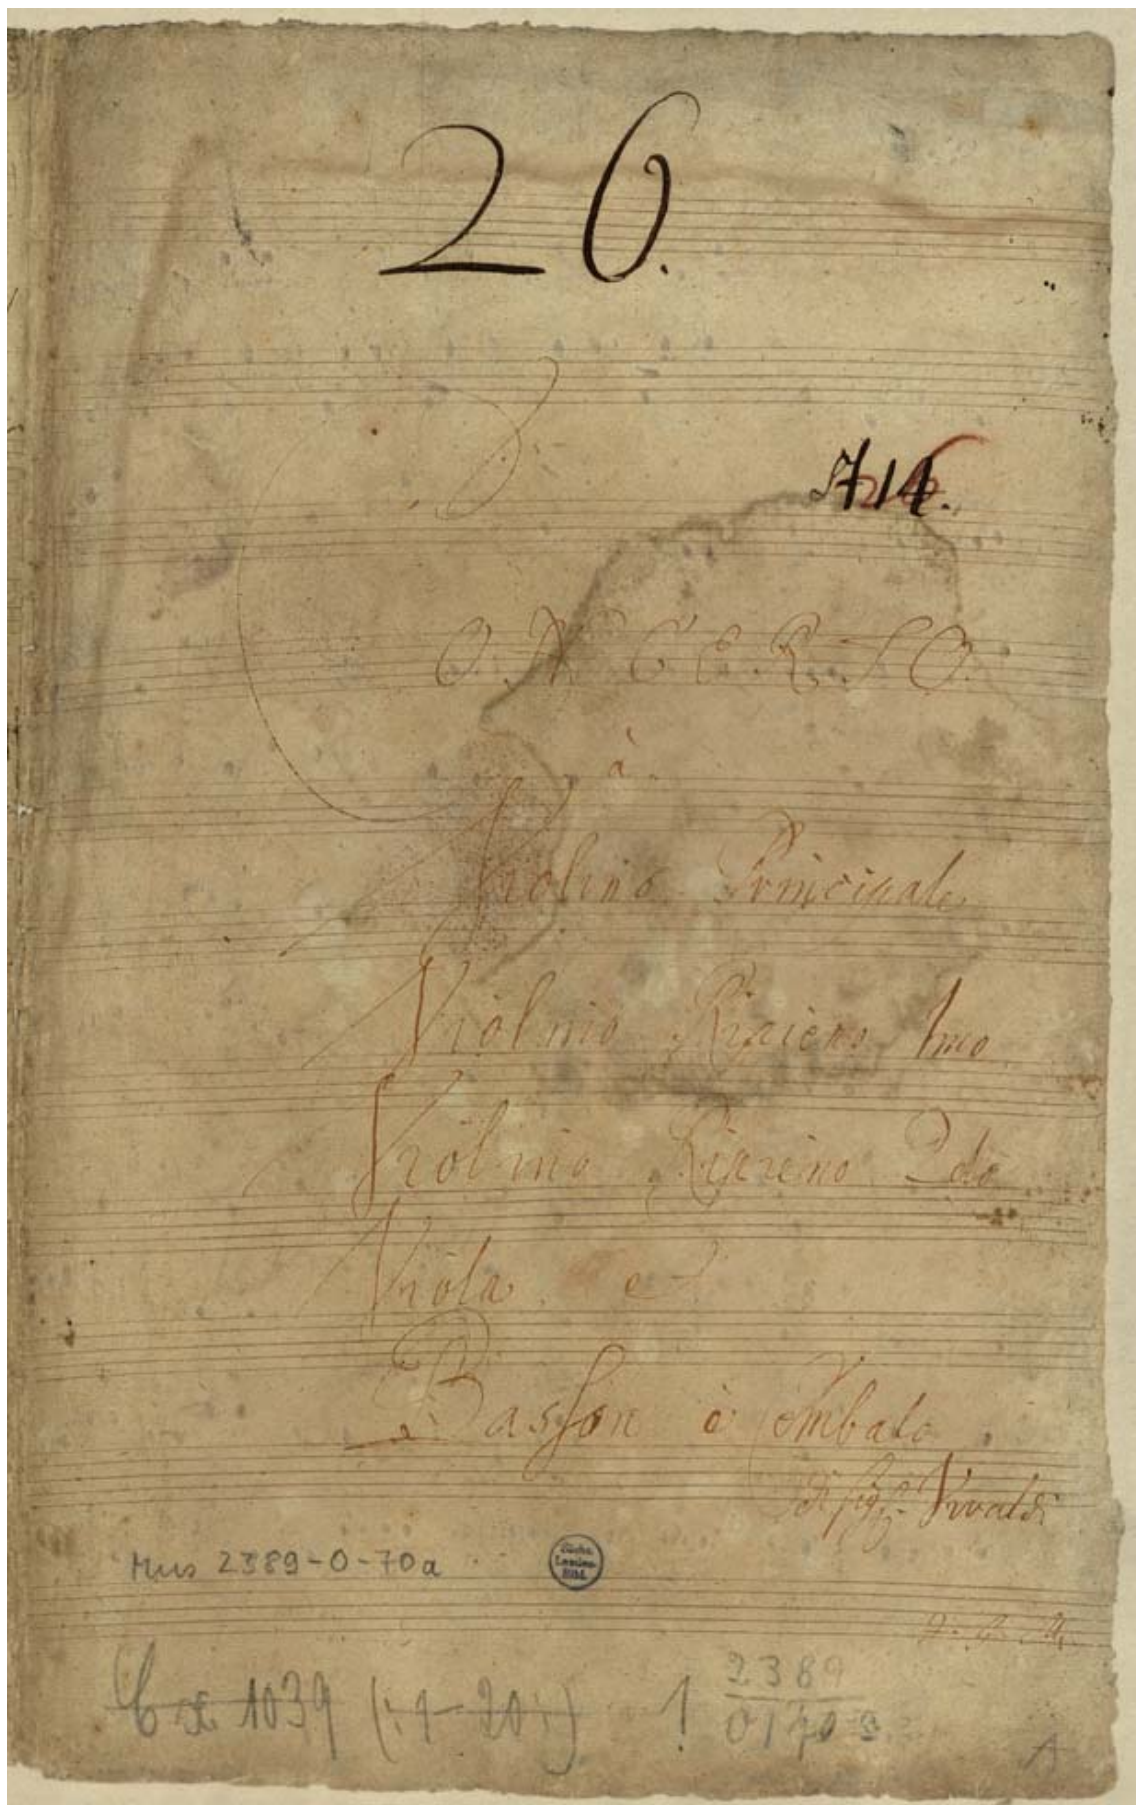 26.
714.
CONCERTO.
à.
Violino Principale
Violino Ripieno 1mo
Violino Ripieno 2do
Viola e
Basson è Cembalo.
di Sigr. Vivaldi
Mus 2389-0-70a
Sächs.
Landes-
Bibl.
Cx 1039 (:1-20:) 1 2389